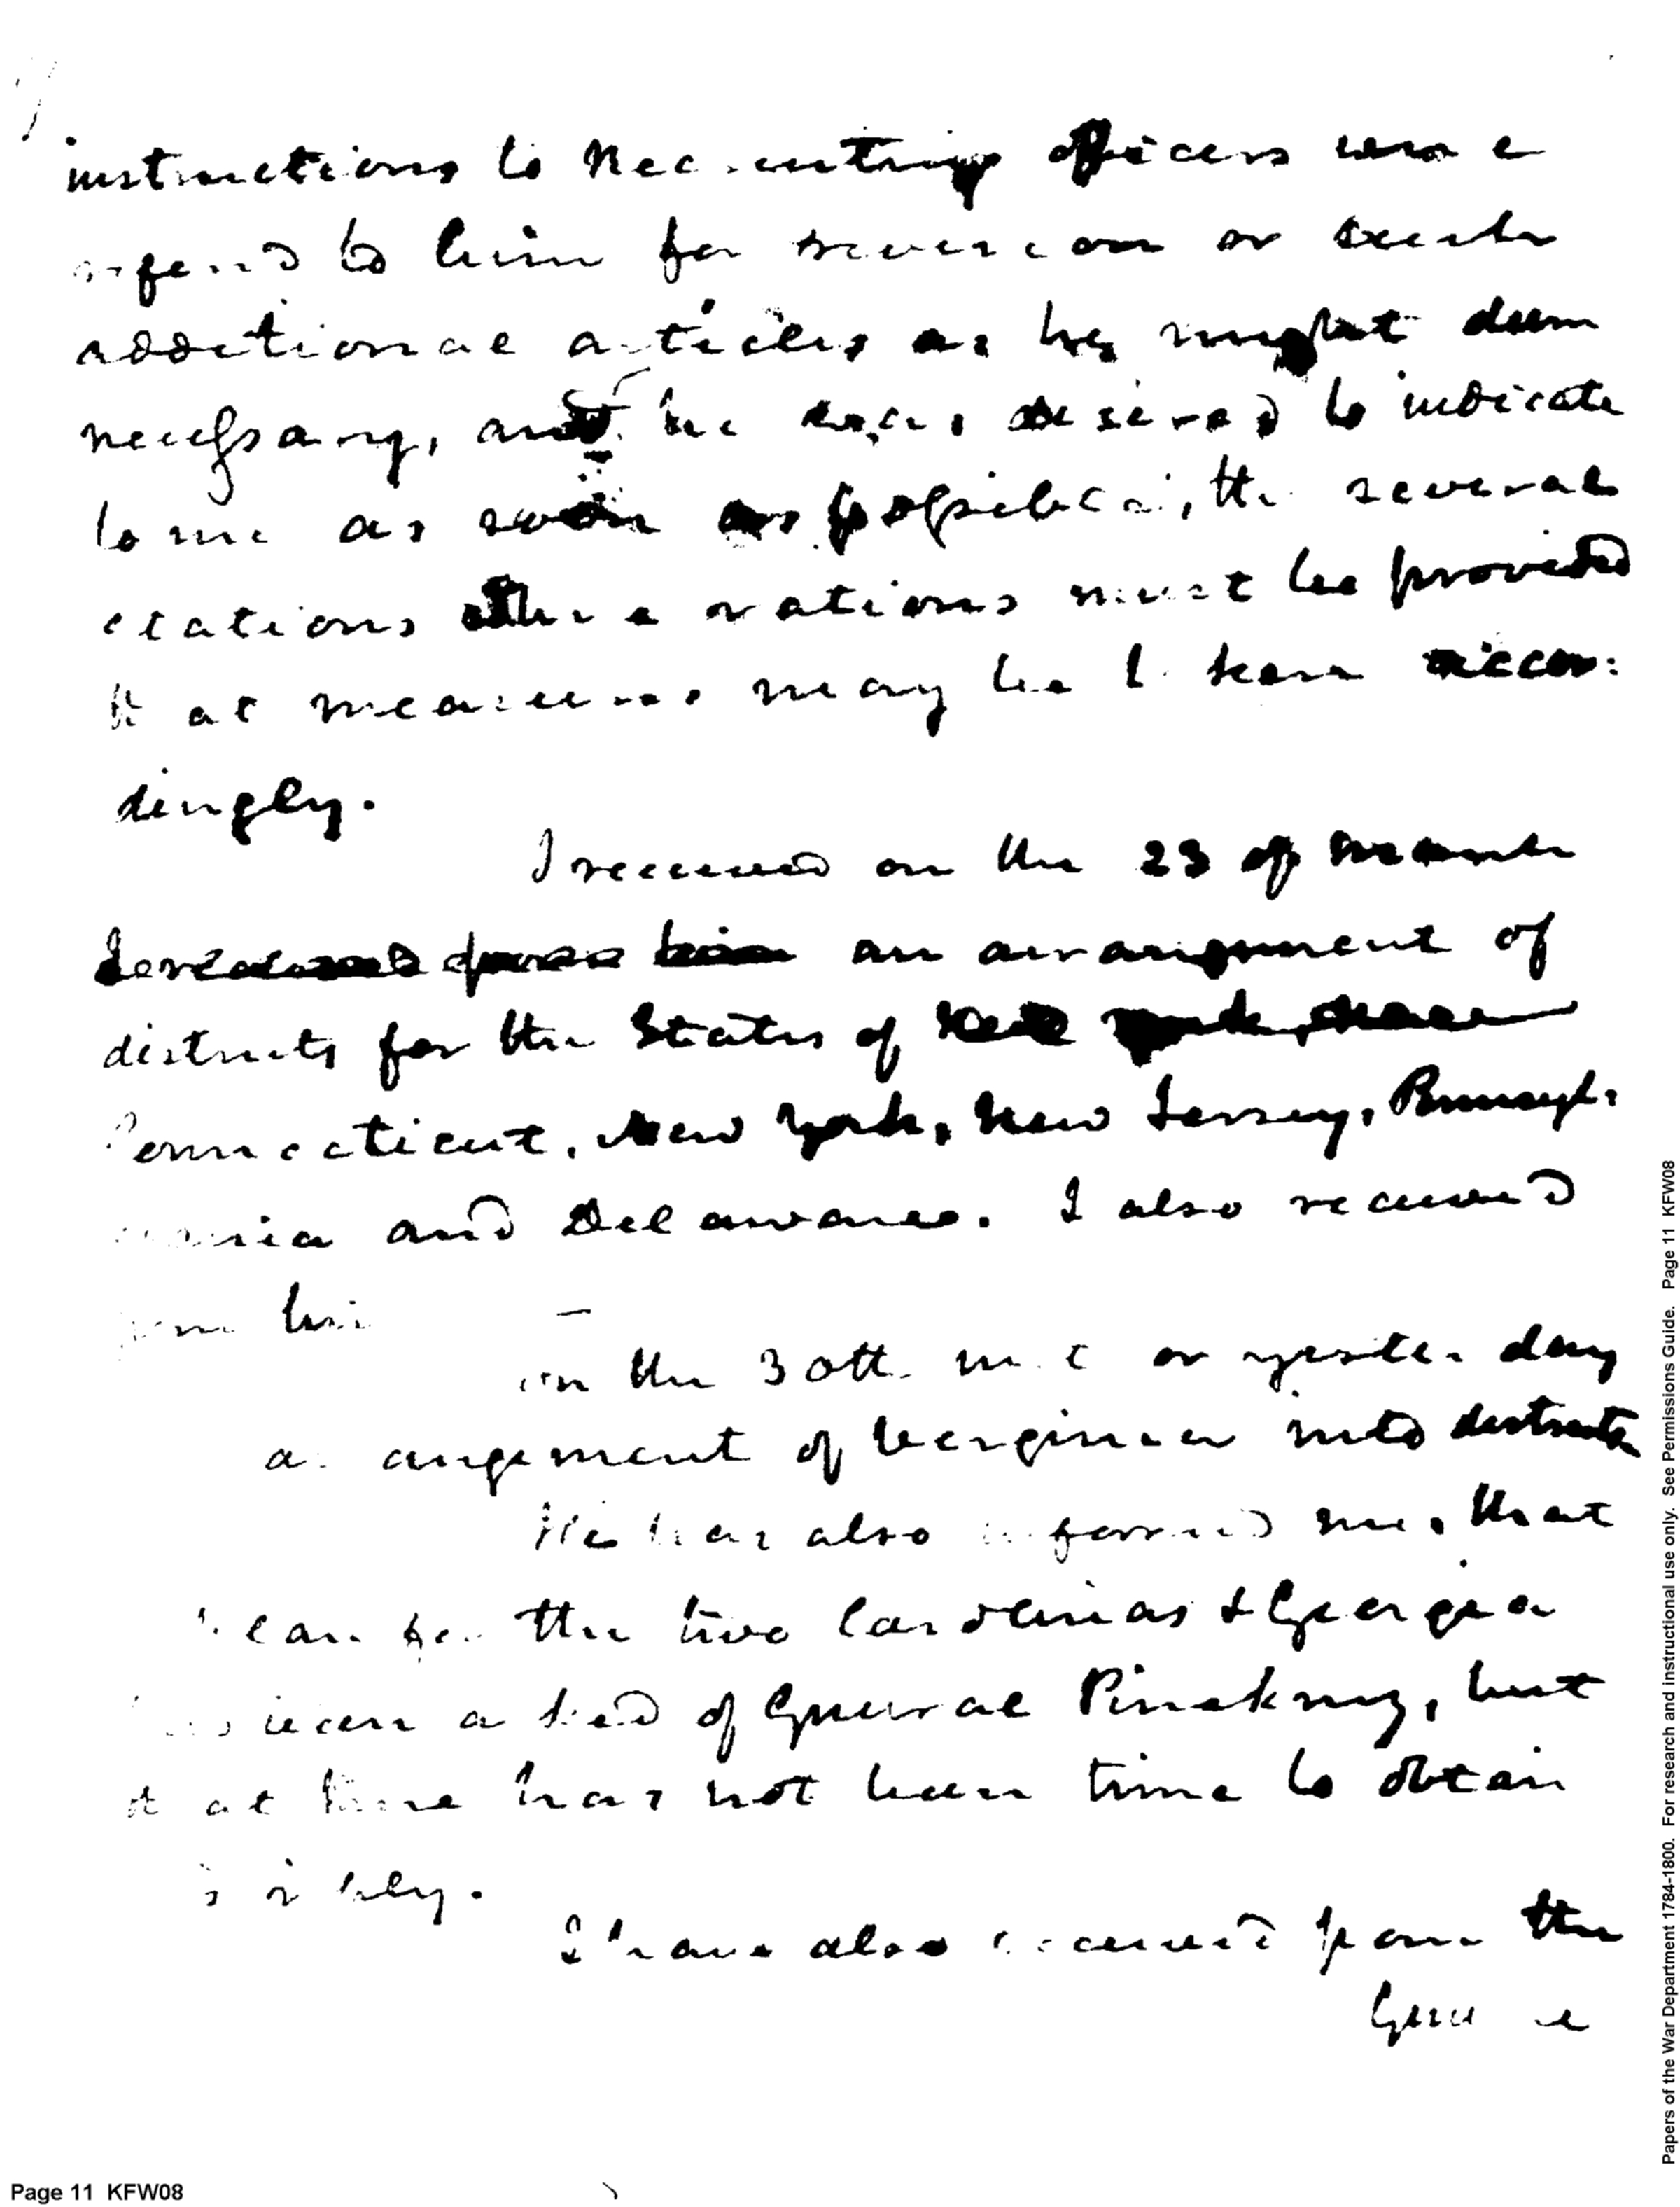 instructions to Recruiting officers were
referred to him for revision or such
additional articles as he might deem
necessary, and he was desired to indicate
to me as soon as possible, the several
stations where rations must be provided
that measures may be taken accor:
dingly.
I received on the 23 of March
from him an arrangement of
districts for the States of
Connecticut, New York, New Jersey, Pennsyl:
vania and Delaware. I also received
from him
on the 30th inst or yesterday
arrangement of Virginia into districts
He has also informed me, that
plan for the two Carolinas & Georgia
has been asked of General Pinckney, but
that there has not been time to obtain
his reply.
I have also received from the
General
Page 11 KFW08
Papers of the War Department 1784-1800. For research and instructional use only. See Permissions Guide. Page 11 KFW08